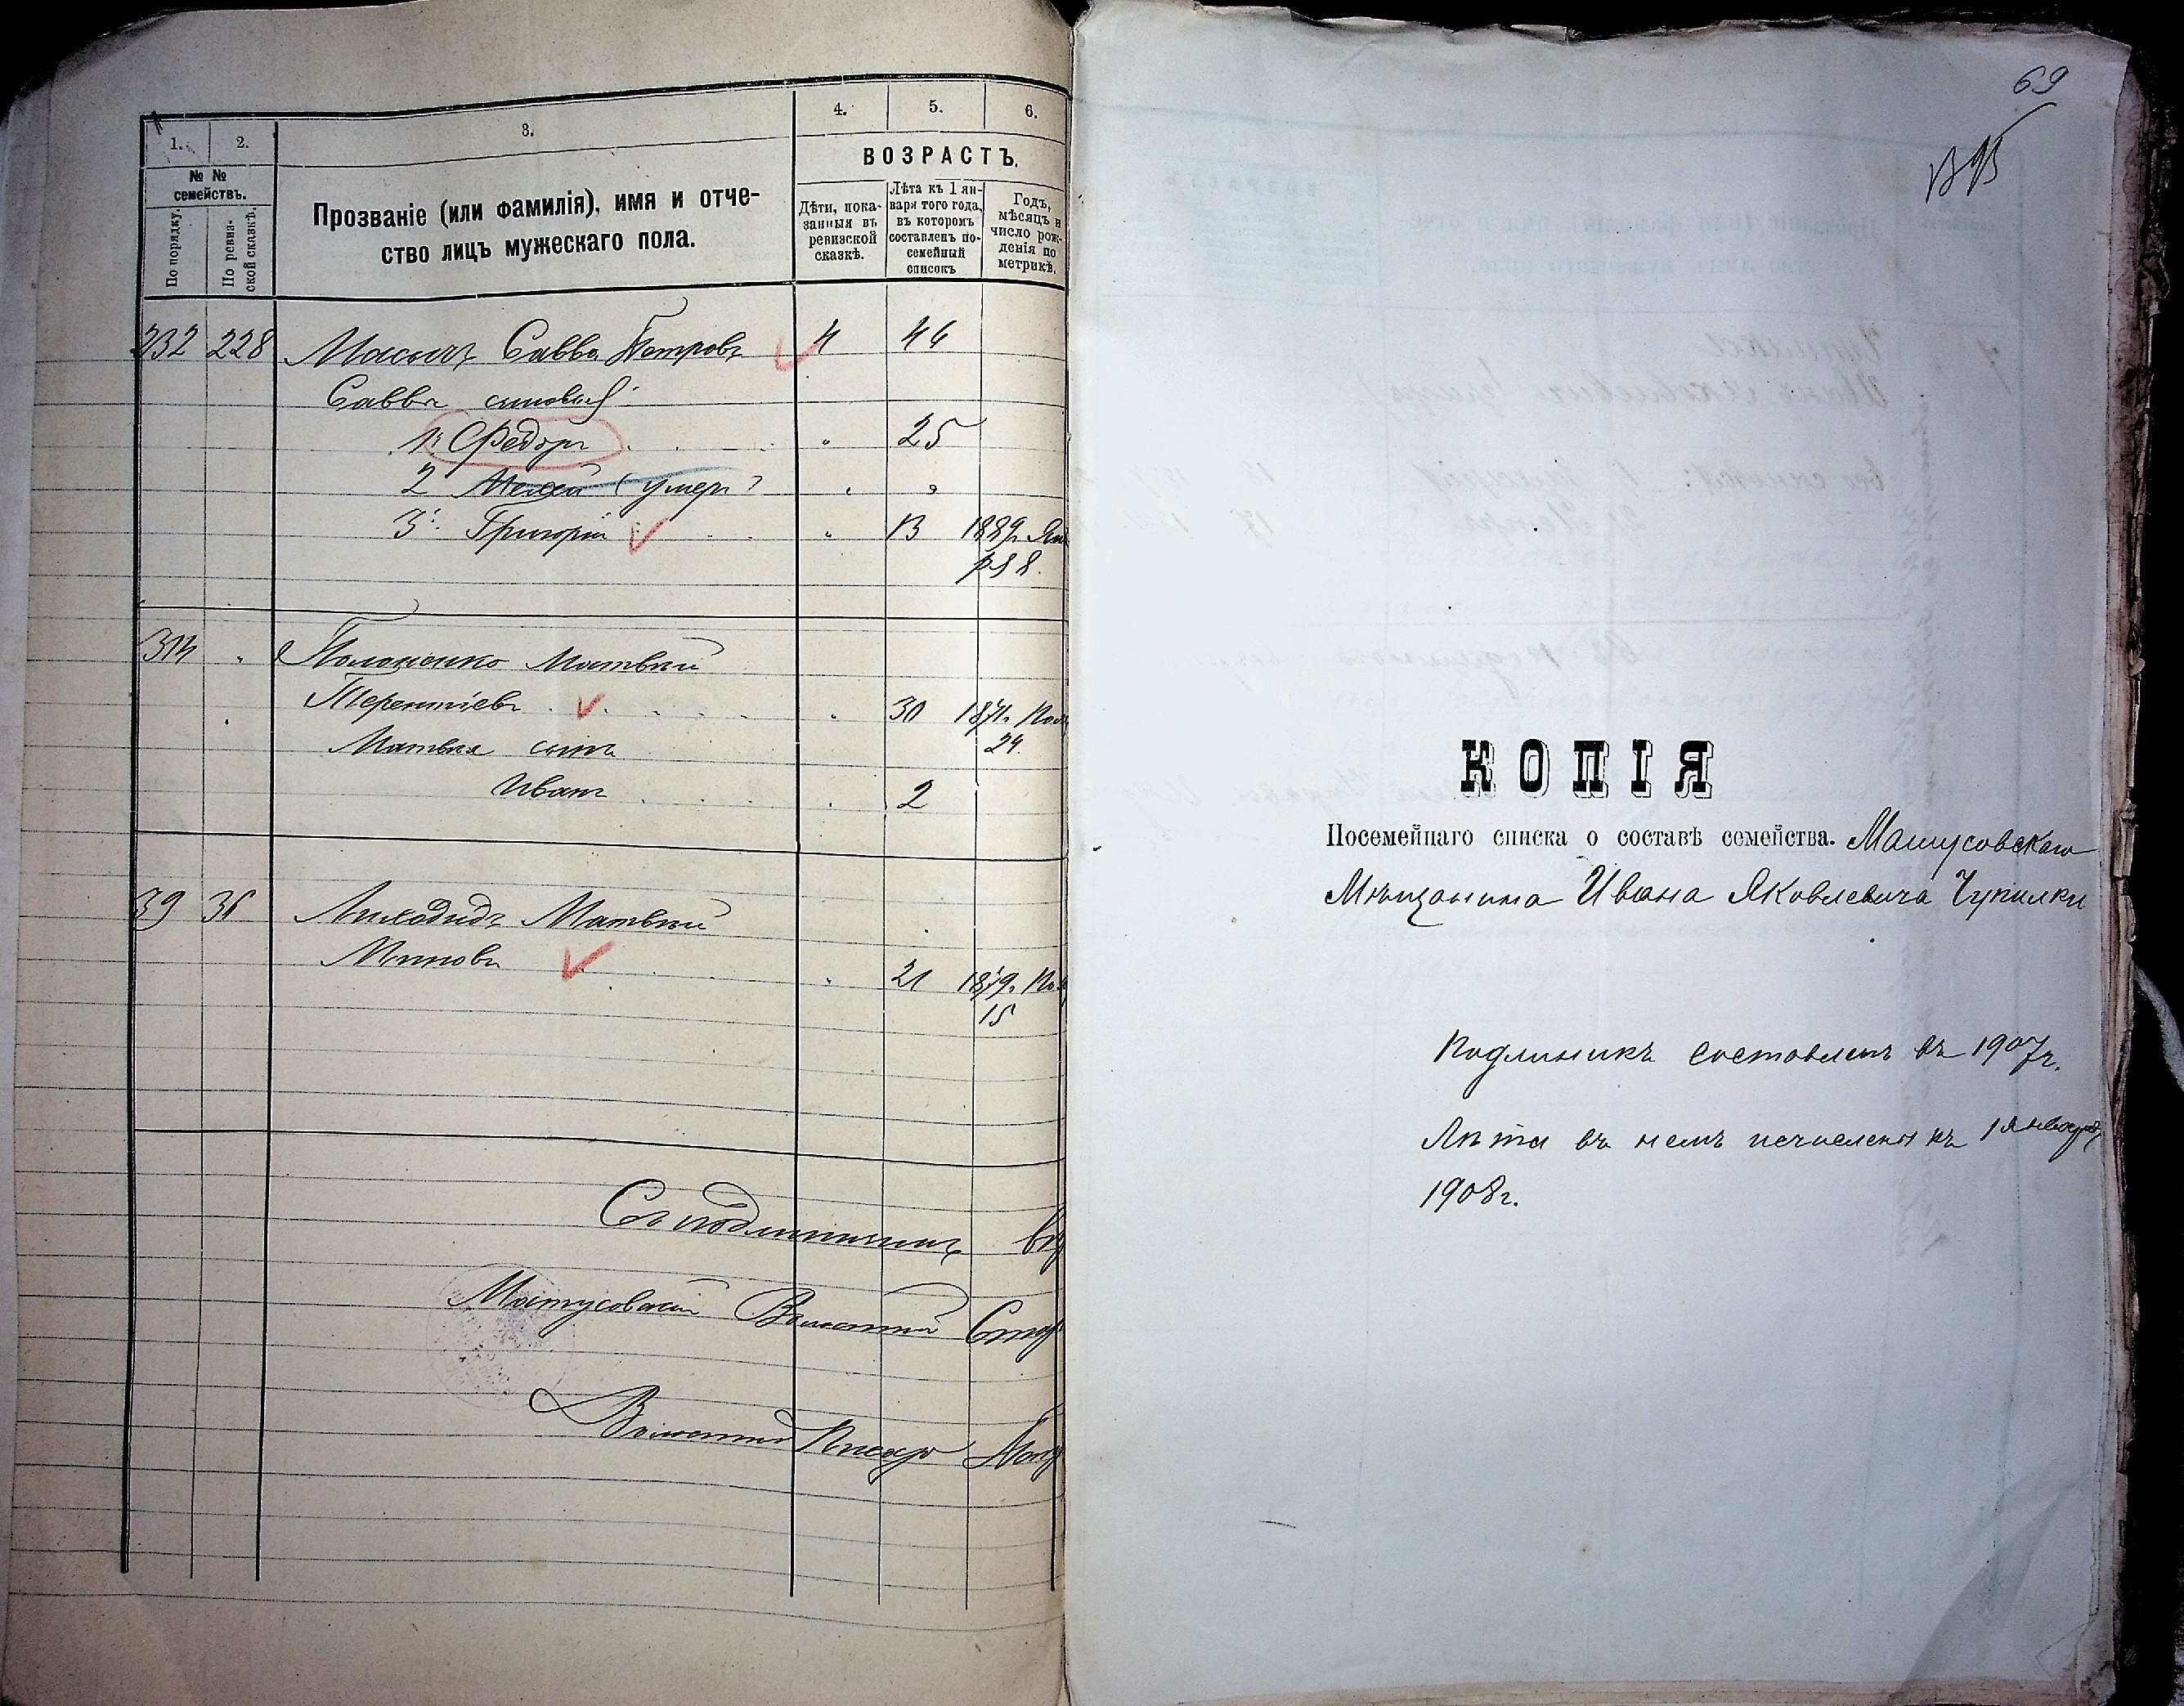 1. 2. 3. 4. 5. 6.
№ № семействъ.
По порядку.
По ревиз-
ской сказкѣ.
Прозваніе (или фамилія), имя и отче-
ство лицъ мужескаго пола.
ВОЗРАСТЪ.
Дѣти, пока-
занныя въ
ревизской
сказкѣ.
Лѣта къ 1 ян-
варя того года,
въ которомъ
составленъ по-
семейный
списокъ
Годъ,
мѣсяцъ и
число рож-
денія по
метрикѣ.
232 228 Савва Петровъ 4 46
Савва сыновья
1й Федоръ " 25
2 (умеръ) " "
3й Григорій " 13 1889г. Ян
ря 8.
314 " Матвѣй
Терентіевъ " 30 1871г. Ноя
24.
Матвѣя сынъ
Иванъ 2
39 36 Лиходидъ Матвѣй
" 21 1879г. Но
15
Съ подлиннымъ вѣ
Матусовскій Волостной Стар
Волостной Писарь
69
КОПІЯ
Посемейнаго списка о составѣ семейства. Матусовскаго
Мѣщанина Ивана Яковлевича Чупилки
Подлинникъ составленъ въ 1907г.
Лѣта въ немъ исчислены къ 1 января
1908г.